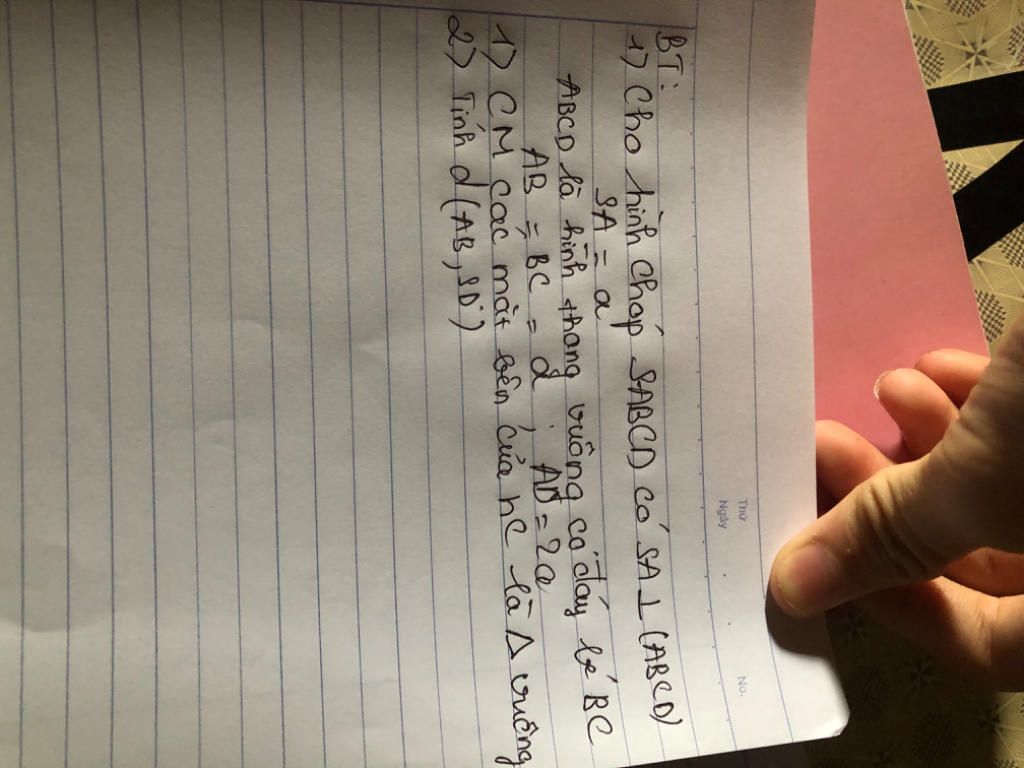 Thứ
Ngày
No.
BT:
1) Cho hình chóp SABCD có SA ⊥ (ABCD)
SA = a
ABCD là hình thang vuông có đáy bé BC
AB = BC = a, AD = 2a
1) CM các mặt bên của hC là Δ vuông
2) Tính d(AB, SD)